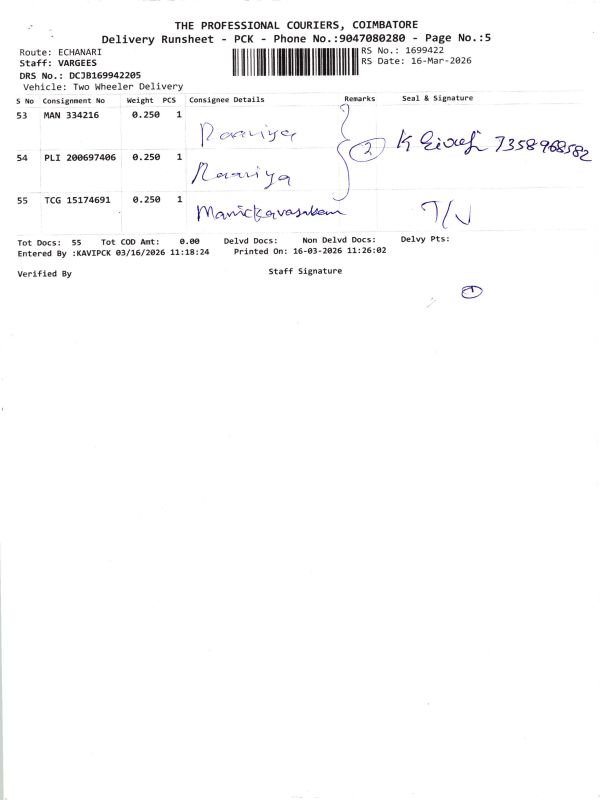 THE PROFESSIONAL COURIERS, COIMBATORE
Delivery Runsheet - PCK - Phone No.:9047080280 - Page No.:5
Route: ECHANARI
RS No.: 1699422
Staff: VARGEES
RS Date: 16-Mar-2026
DRS No.: DCJB169942205
Vehicle: Two Wheeler Delivery
S No Consignment No Weight PCS Consignee Details Remarks Seal & Signature
53 MAN 334216 0.250 1
2 K 7358968582
54 PLI 200697406 0.250 1
55 TCG 15174691 0.250 1 Manickavasakam
Tot Docs: 55 Tot COD Amt: 0.00 Delvd Docs: Non Delvd Docs: Delvy Pts:
Entered By :KAVIPCK 03/16/2026 11:18:24 Printed On: 16-03-2026 11:26:02
Verified By Staff Signature
1